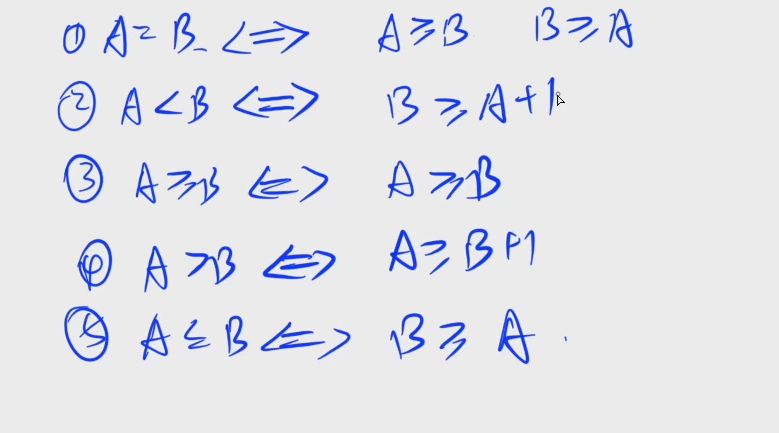 ① A = B <=> A ≥ B B ≥ A
② A < B <=> B ≥ A + 1
③ A ≥ B <=> A ≥ B
④ A > B <=> A ≥ B + 1
⑤ A ≤ B <=> B ≥ A.